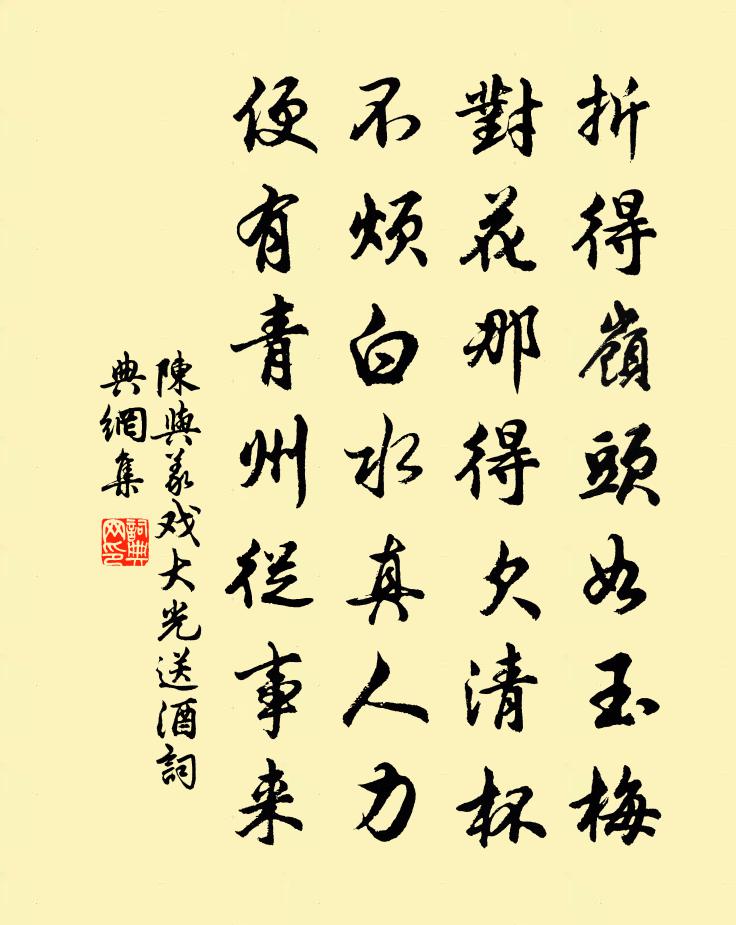 折得嶺頭如玉梅
對花那得欠清杯
不烦白水真人力
便有青州從事来
陳與義戏大光送酒詞
典網集
詞典
网印